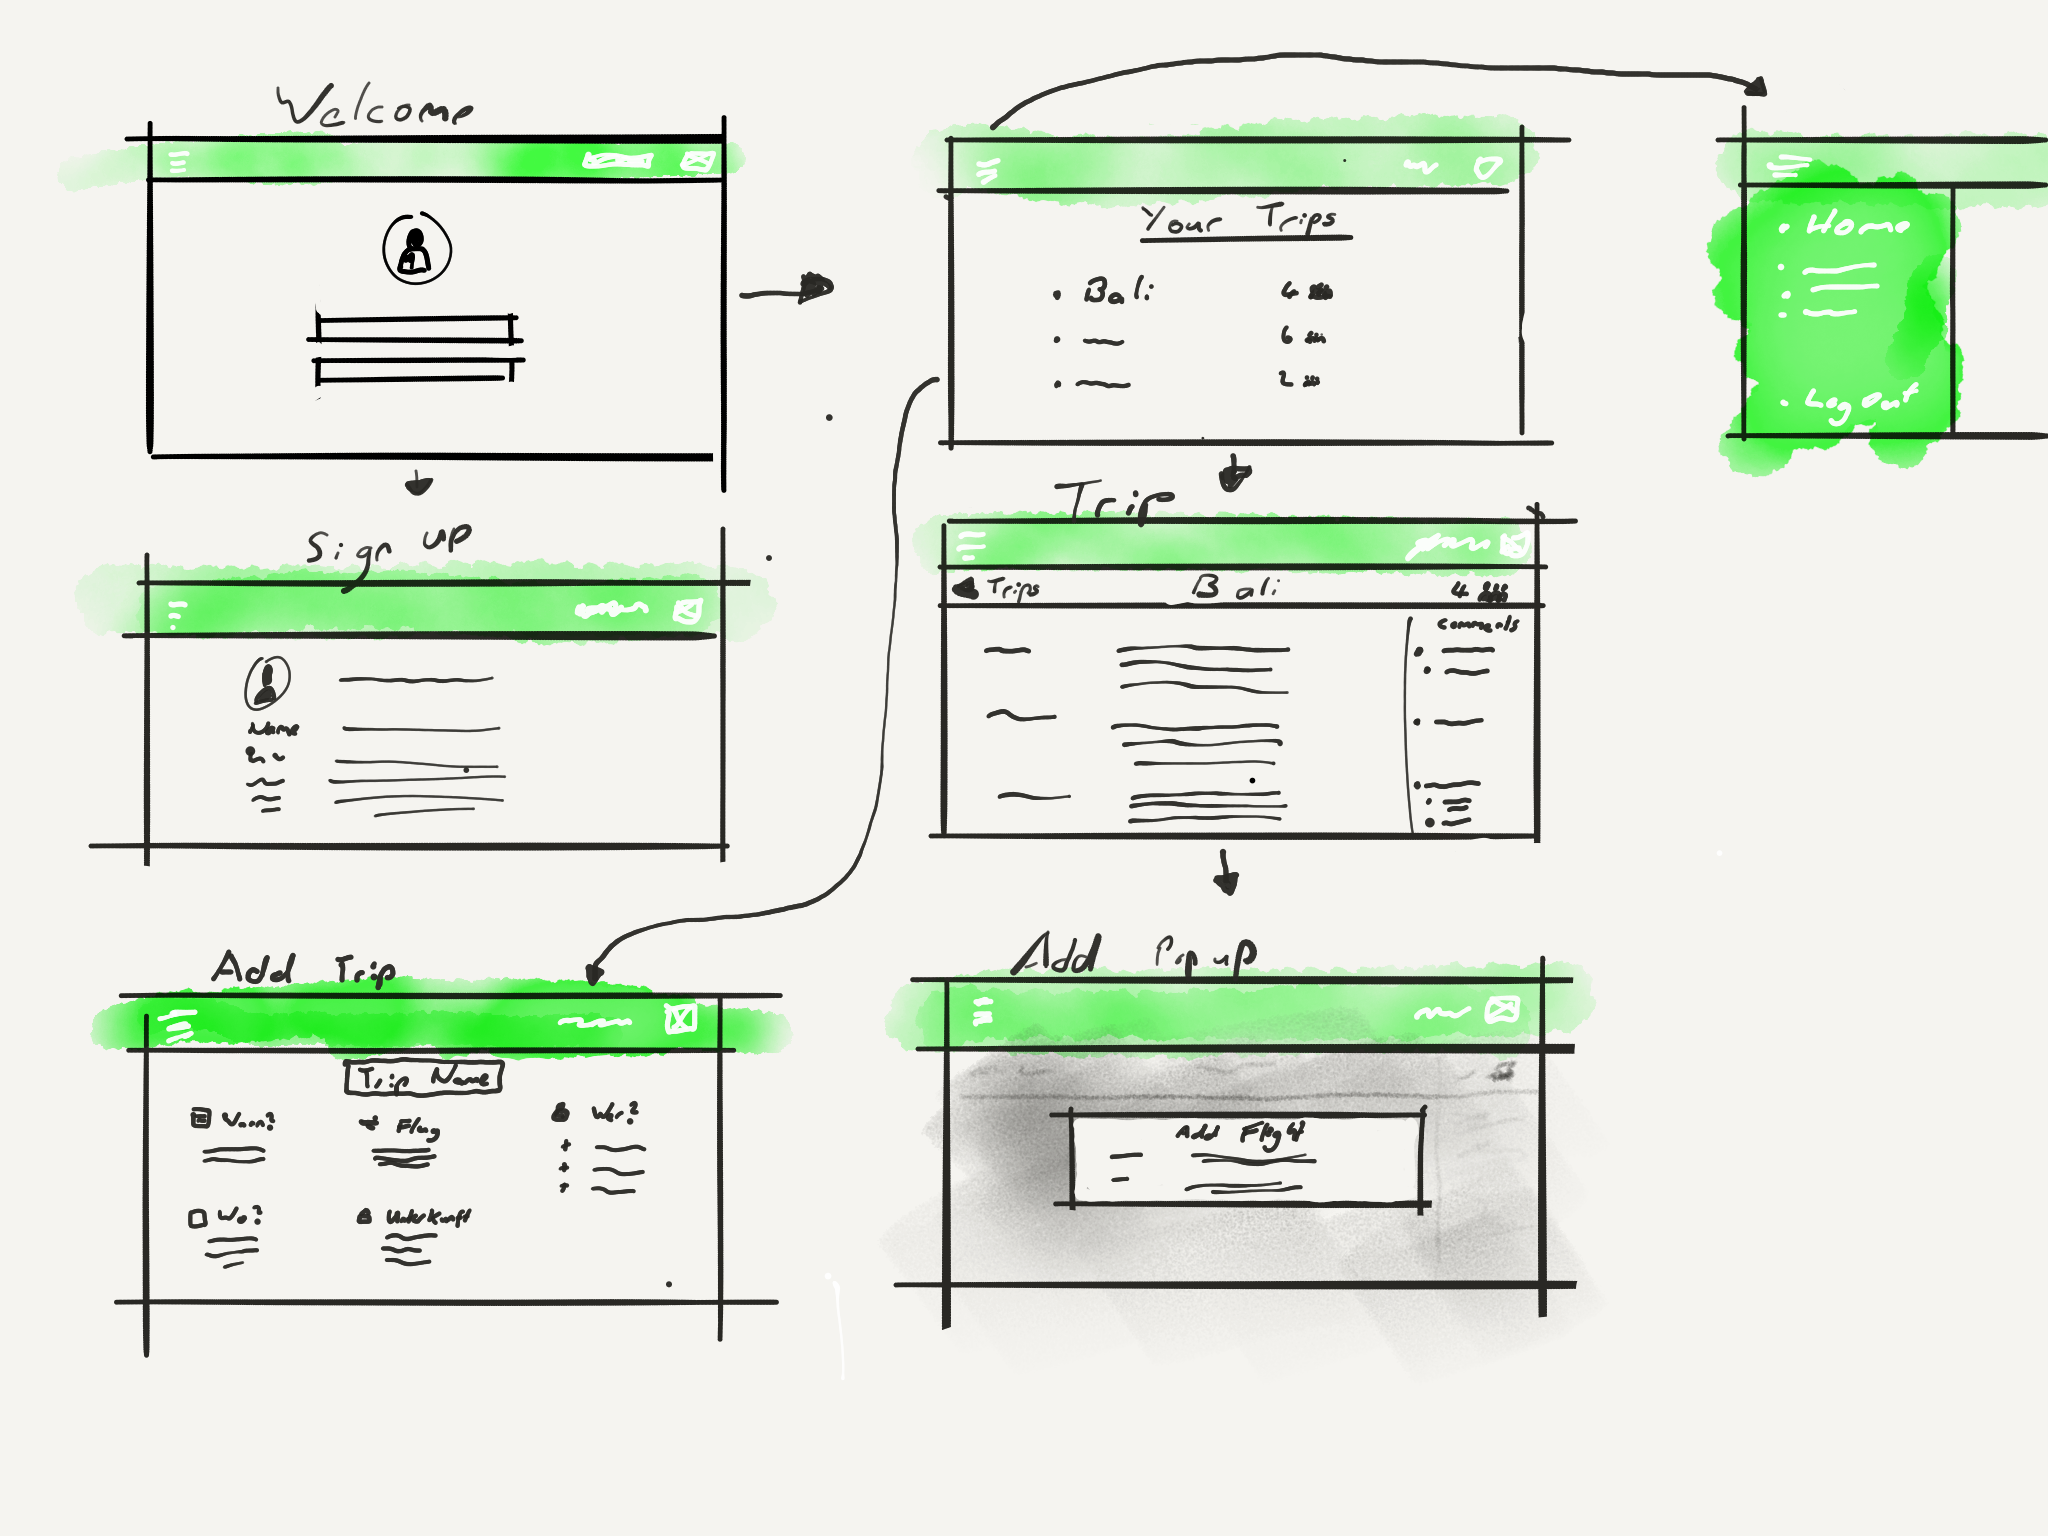 Welcome
Your Trips
• Bali 4
• 6
• 2
• Home
• Log out
Sign up
Name
Trip
Trips Bali 4
comments
Add Trip
Trip Name
Wann?
Flug
Wer?
Wo?
Unterkunft
Add Popup
Add Flight